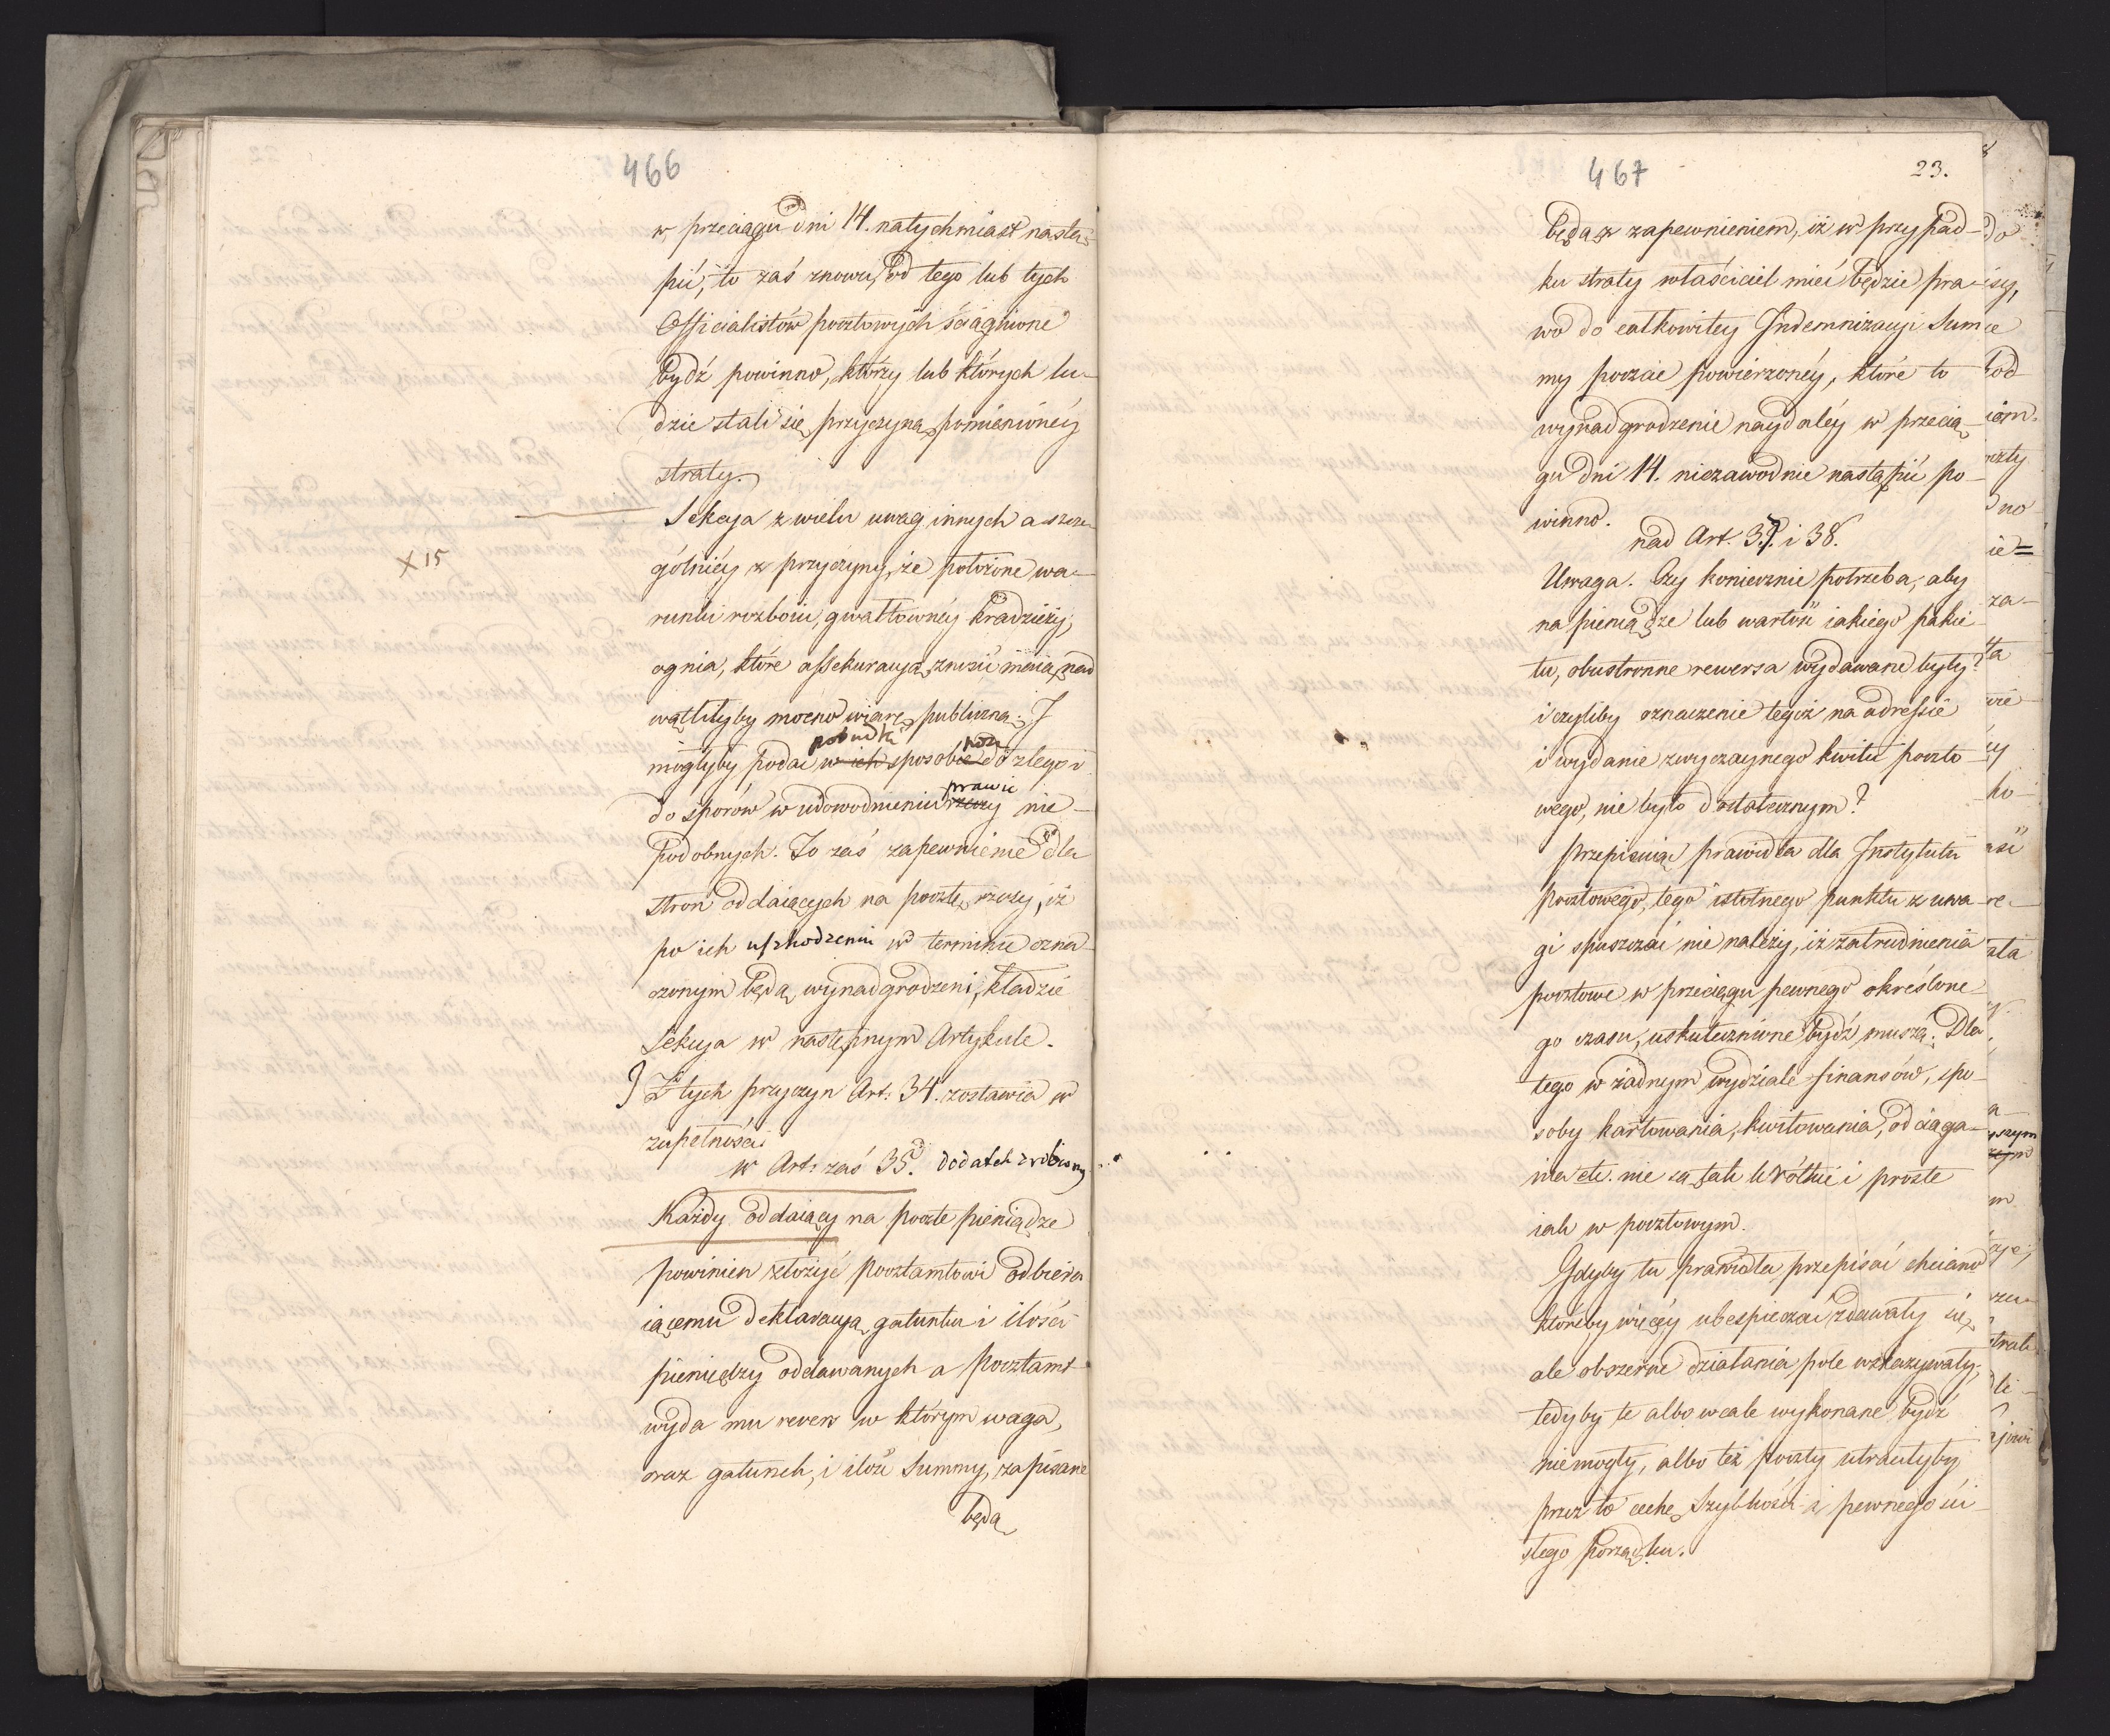 466
w przeciągu dni 14. natychmiast nastą-
pić, to zaś znowu, od tego lub tych
Officialistów pocztowych ściągnione
bydź powinno, którzy lub których lu-
dzie stali się przyczyną pomienionéy
straty.
Sekcya z wielu uwag innych a szcze-
gólniéy z przyczyny, że położone wa-
X 15
runki rozboiu, gwałtownéy kradzieży,
ognia, które assekuracyą znosić maią, nad
wątliłyby mocno wiarę publiczną; I
pobudki
mogłyby podać w ich sposobie do złego i
prawie
do sporów w udowodnieniu rzeczy nie-
podobnych. To zaś zapewnienie dla
stron oddaiących na pocztę rzeczy, iż
po ich uszkodzeniu w terminie ozna-
czonym będą wynadgrodzeni, kładzie
Sekcya w następnym Artykule.
Z tych przyczyn Art. 34. zostawia w
zupełności
w Art. zaś 35. dodatek zrobiony
Każdy oddaiący na pocztę pieniądze
powinien złożyć Pocztamtowi odbiera
iącemu deklaracyą gatunku i ilości
pieniędzy oddawanych a Pocztamt
wyda mu rewers w którym waga,
oraz gatunek, i ilość Summy, zapisane
będą
467
23.
będą z zapewnieniem, iż w przypad-
ku straty właściciel mieć będzie pra-
wo do całkowitey Indemnizacyi Sum
my poczcie powierzonéy, które to
wynadgrodzenie naydaléy w przecią-
gu dni 14. niezawodnie nastąpić po-
winno.
nad Art. 37. i 38.
Uwaga. Czy koniecznie potrzeba, aby
na pieniądze lub wartość iakiego pakie-
tu, obustronne rewersa wydawane były?
i czyliby oznaczenie tegoż na adressie
i wydanie zwyczaynego kwitu poczto-
wego, nie było dostatecznym?
Przepisuiąc prawidła dla Instytutu
pocztowego, tego istotnego punktu z uwa-
gi spuszczać nie należy, iż zatrudnienia
pocztowe w przeciągu pewnego określone-
go czasu, uskutecznione bydź muszą. Dla
tego w żadnym wydziale finansów, spo-
soby kartowania, kwitowania, odciąga-
nia etc. nie są tak krótkie i proste
iak w pocztowym.
Gdyby tu prawidła przepisać chciano
któreby więcéy ubespieczać zdawały się,
ale obszerne działania pole wskazywały,
tedyby te albo wcale wykonane bydź
niemogły, albo też poczty utraciłyby
przez to cechę szybkości i pewnego ści-
słego porządku.